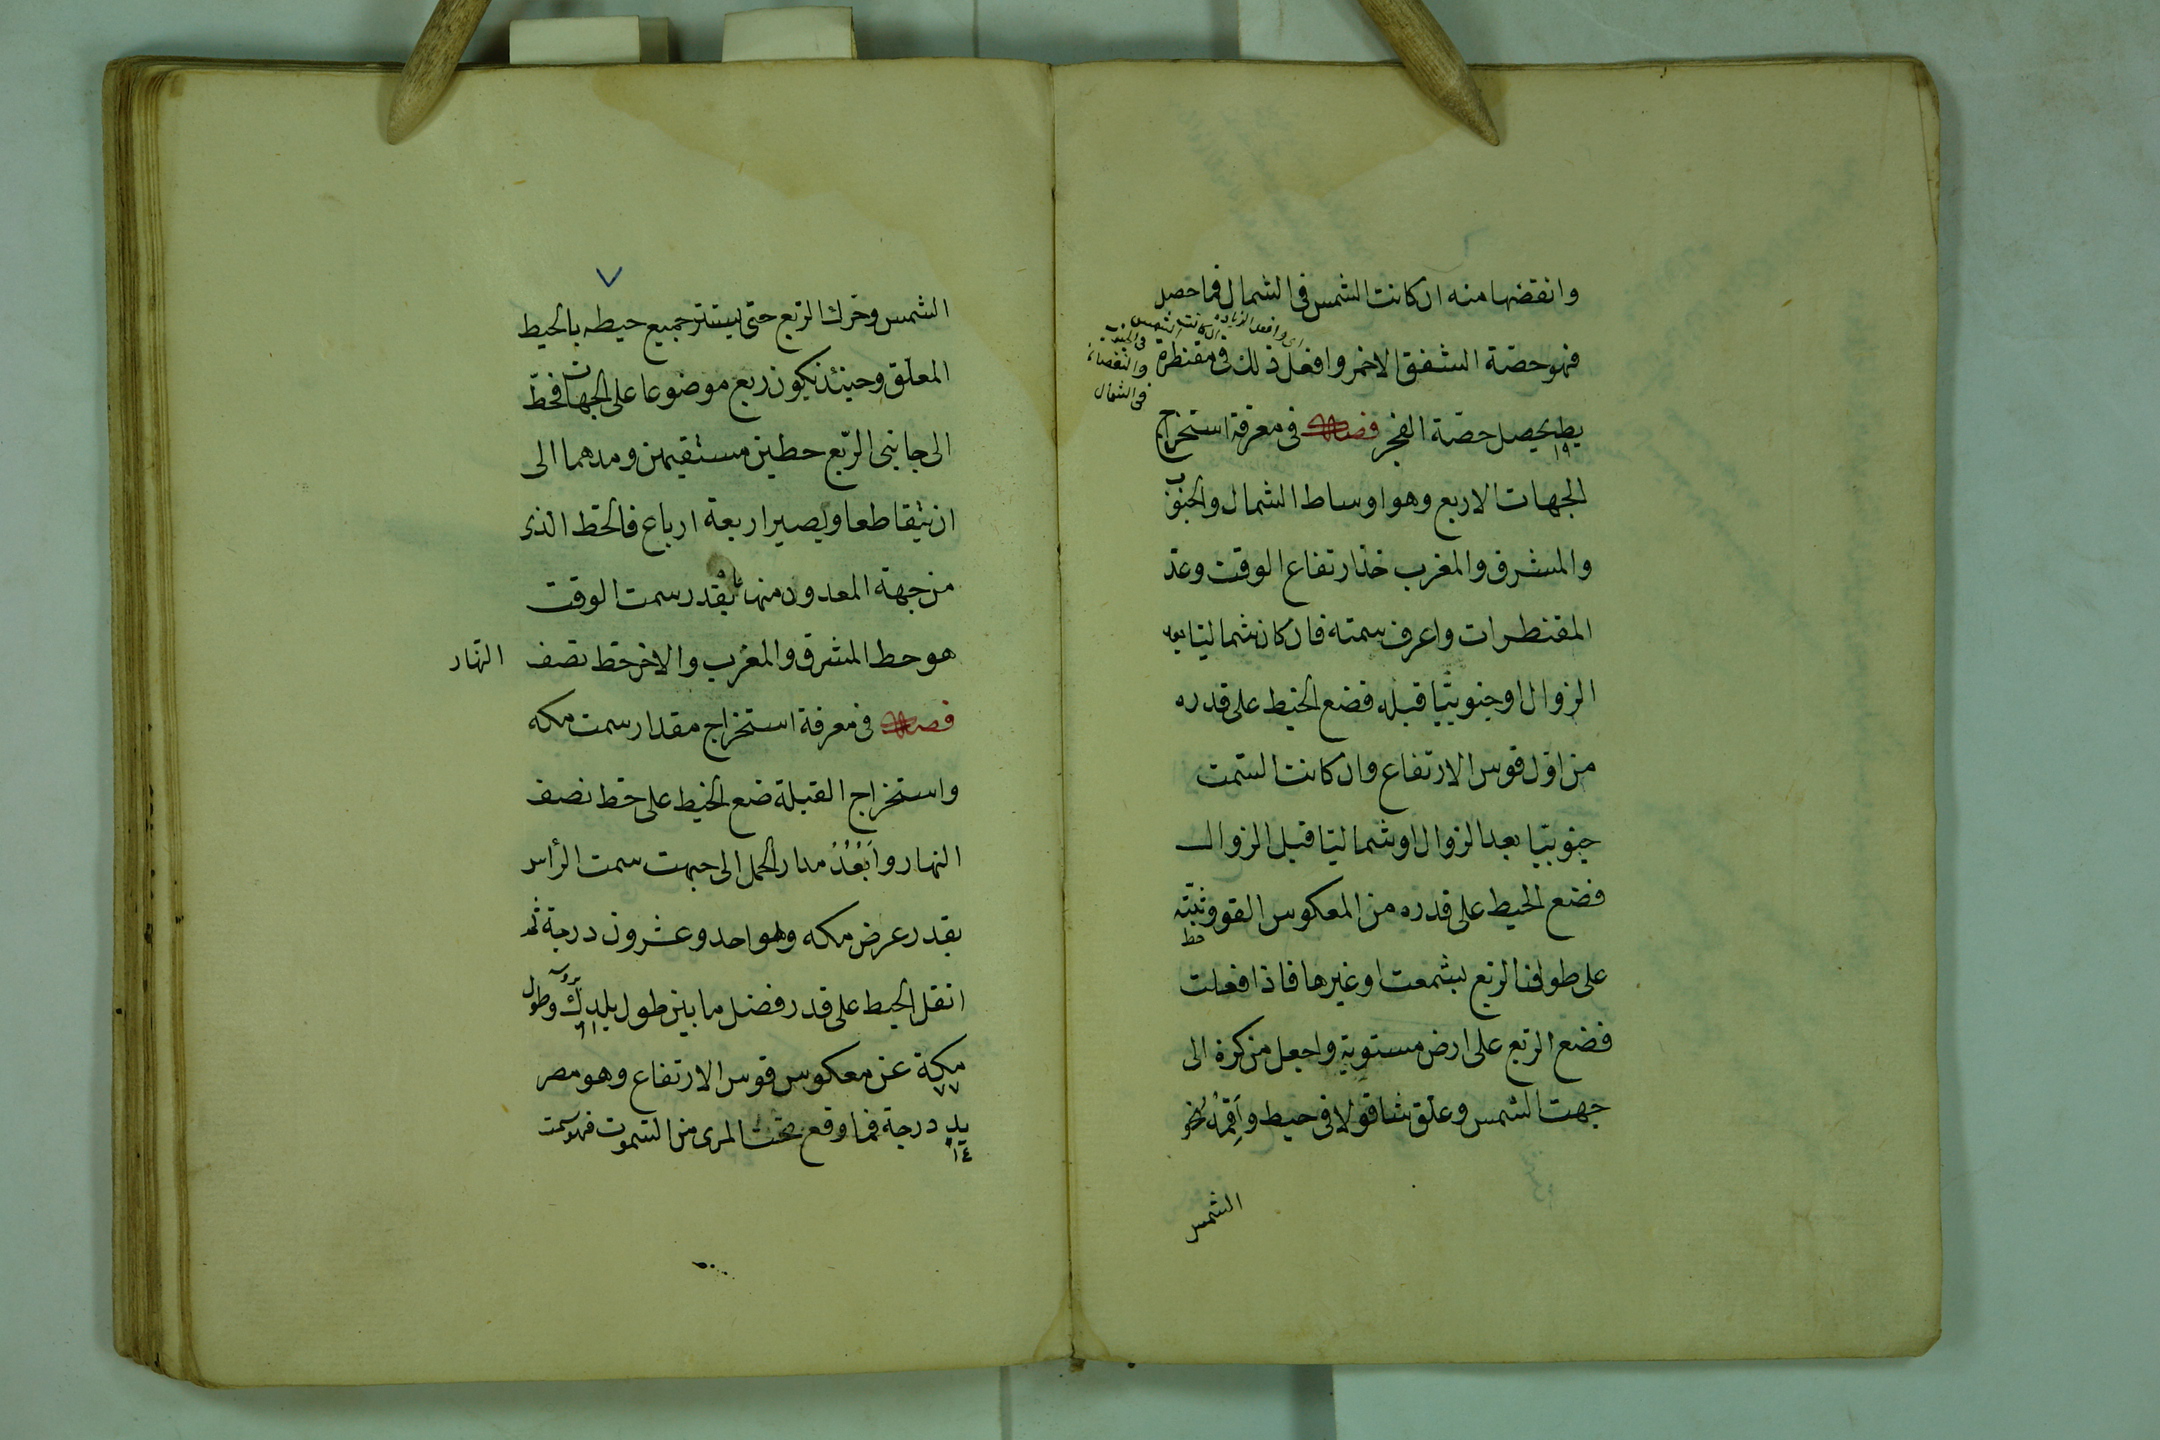 وانقضها منه ان كانت الشمس فى الشمال فما حصل
اى وافعل الزيادة ان كانت الشمس
فى الجنوب
والنقصان
فى الشمال
فهو حصّة الشفق الاحمر وافعل ذلك فى مقنطرة
يط يحصل حصّة الفجر فصل فى معرفة استخراج
١٩
الجهات الاربع وهو اوساط الشمال والجنوب
والمشرق والمغرب خذ ارتفاع الوقت وعدّ
المقنطرات واعرف سمته فان كان شماليّا بعد
الزوال او جنوبيّا قبله فضع الخيط على قدره
من اوّل قوس الارتفاع وان كانت السّمت
جنوبيّا بعد الزوال او شماليّا قبل الزوال
فضع الخيط على قدره من المعكوس القو وثبّته
خط
على طولفا الربع بشمعت او غيرها فاذا فعلت
فضع الربع على ارض مستوية واجعل مركزه الى
جهت الشمس وعلّق شاقولا فى خيط واقمه نحو
الشمس
٧
الشمس وحرك الربع حتى يستتر جميع خيطه بالخيط
المعلّق وحينئذ يكون ربع موضوعا على الجهات فخطّ
الى جانبى الرّبع خطين مستقيمين ومدهما الى
ان يتقاطعا ويصير اربعة ارباع فالخط الذى
من جهة المعدود منها بقدر سمت الوقت
هو خط المشرق والمغرب والاخر خط نصف النهار
فصل فى معرفة استخراج مقدار سمت مكه
واستخراج القبلة ضع الخيط على خط نصف
النهار وابعد مدار الحمل الى جهت سمت الرأس
بقدر عرض مكه وهو احد وعشرون درجة ثم
انقل الخيط على قدر فضل ما بين طول بلدك وطول
بروسه
٦١
مكة عن معكوس قوس الارتفاع وهو مصر
٧٧
يد درجة فما وقع تحت المرى من السّموت فهو سمت
١٤